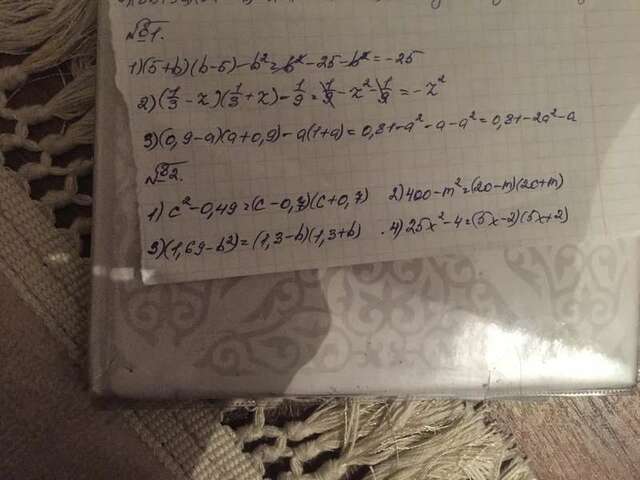 №81.
1)(5+b)(b-5)-b²=b²-25-b²=-25
2)(1/3-x)(1/3+x)-1/9=1/9-x²-1/9=-x²
3)(0,9-a)(a+0,9)-a(1+a)=0,81-a²-a-a²=0,81-2a²-a
№82.
1) c²-0,49=(c-0,7)(c+0,7) 2)400-m²=(20-m)(20+m)
3)(1,69-b²)=(1,3-b)(1,3+b) . 4)25x²-4=(5x-2)(5x+2)